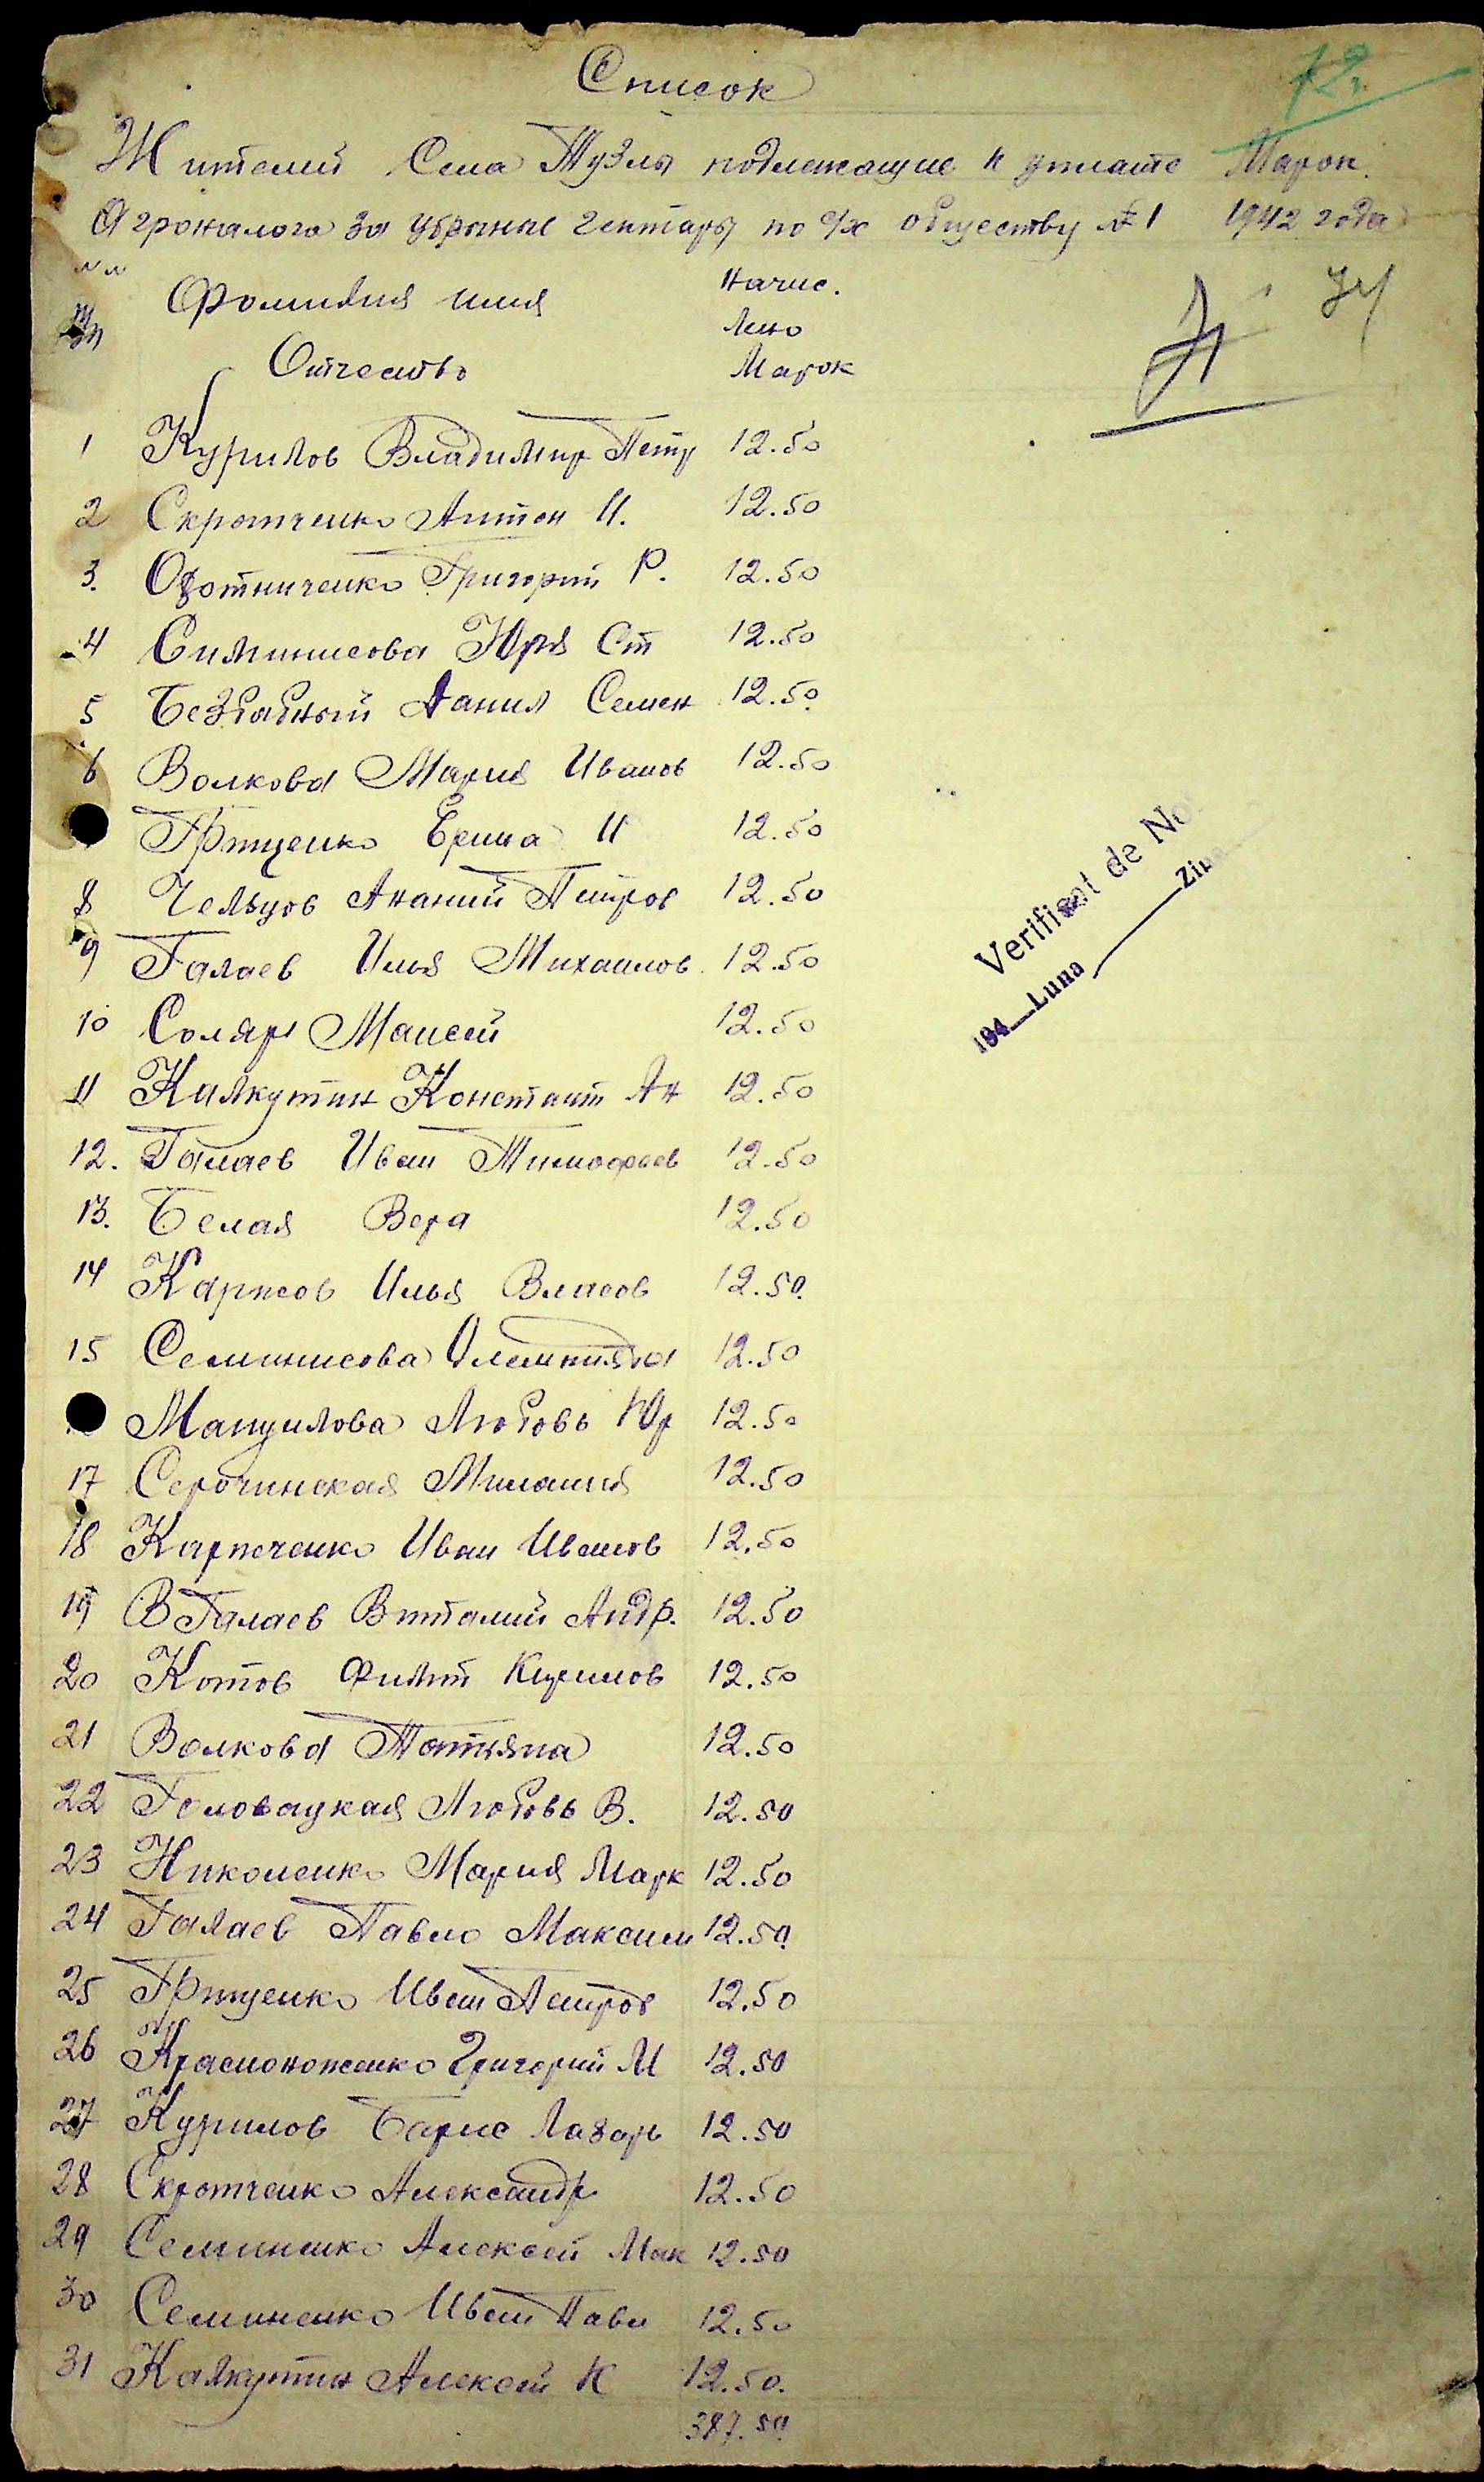 Список
72.
Жителий Села Тузлы подлежащие к уплате Марок.
Агроналога за убраные гектары по с/х обществу № 1 1942 года
Фомилия имя
Отчество
Начис.
лено
Марок
1 Курилов Владимир Петр 12.50
2 Скротченко Антон И. 12.50
3. Охотниченко Григорий Р. 12.50
4 Симинисова Юря Ст 12.50
5 Беззабный Данил Семен 12.50
6 Волкова Мария Иванов 12.50
Гриценко Ерина И 12.50
8 Чельцов Ананий Петров 12.50
9 Галаев Илья Михаилов 12.50
10 Соляр Маисей 12.50
11 Калкутин Константт Ан 12.50
12. Галаев Иван Тимофеев 12.50
13. Белая Вера 12.50
14 Карпов Илья Власов 12.50
15 Семинисова Олемпияда 12.50
Мануилова Любовь Юр 12.50
17 Серочинская Милания 12.50
18 Карпеченко Иван Иванов 12.50
19 В Галаев Витталий Андр. 12.50
20 Котов Филит Кирилов 12.50
21 Волкова Татьяна 12.50
22 Головацкая Любовь В. 12.50
23 Николенко Мария Марк 12.50
24 Галаев Павло Максим 12.50
25 Гриценко Иван Петров 12.50
26 Красионоженко Григорий М 12.50
27 Курилов Барис Лазарь 12.50
28 Скротченко Александр 12.50
29 Семиненко Алексей Мак 12.50
30 Семиненко Иван Павл 12.50
31 Калкутин Алексей К 12.50.
387.50
Verificat de No
194 Luna Ziua